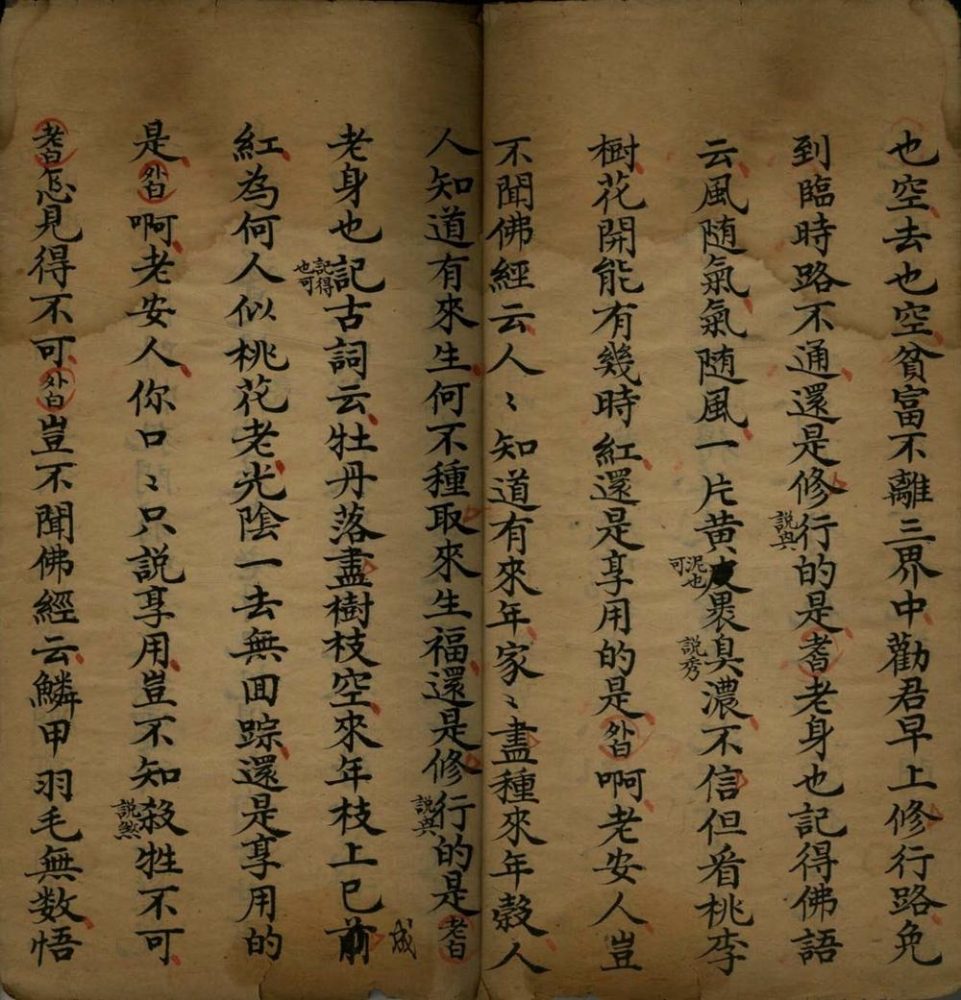 也空去也空貧富不離三界中勸君早上修行路免
到臨時路不通還是修行的是老白老身也記得佛語
說與
云風随氣氣随風一片黃皮裹臭濃不信但看桃李
泥也可
說秀
樹花開能有幾時紅還是享用的是外白啊老安人豈
不聞佛經云人〻知道有來年家〻盡種來年穀人
人知道有來生何不種取來生福還是修行的是老白
說與
老身也記古詞云牡丹落盡樹枝空來年枝上已前
記得也可
成
紅為何人似桃花老光陰一去無囬踪還是享用的
是外白啊老安人你口〻只説享用豈不知殺牲不可
說煞
老白怎見得不可外白豈不聞佛經云鱗甲羽毛無数悟